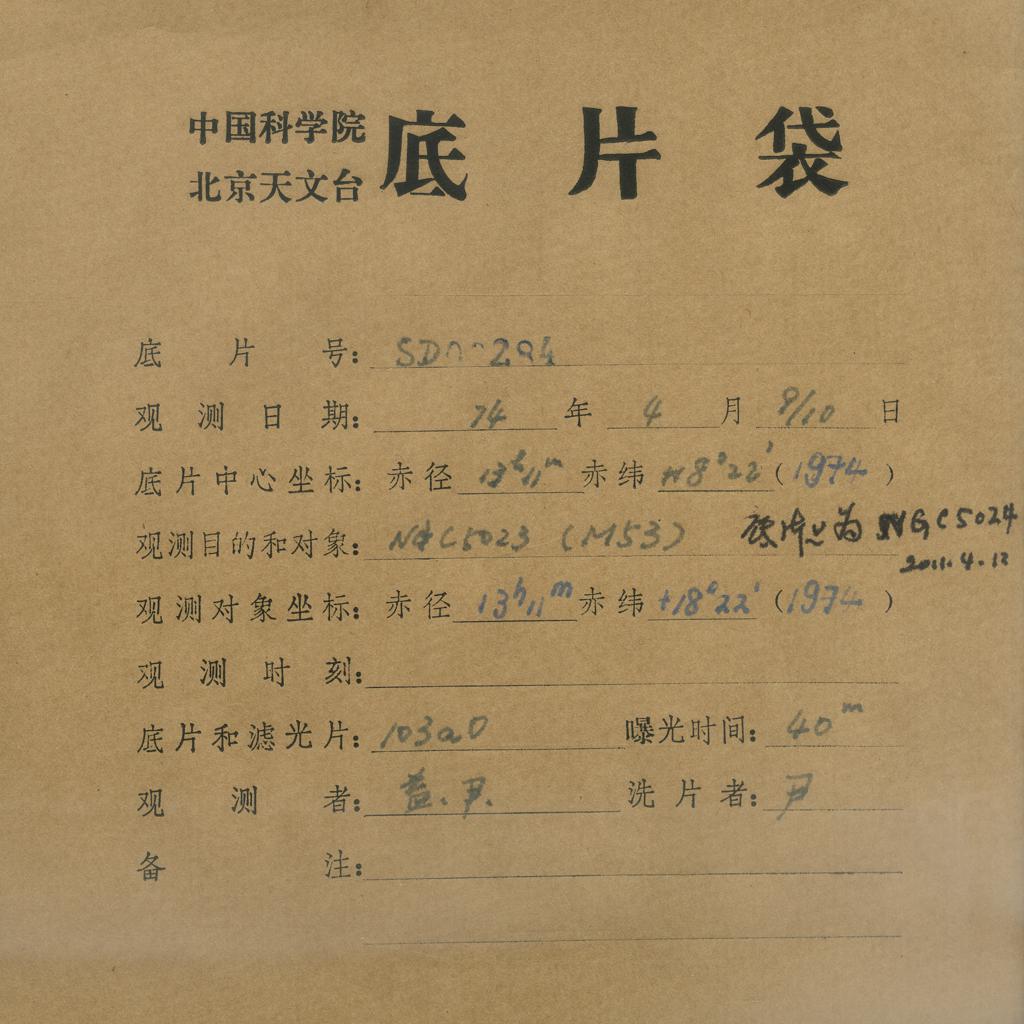 中国科学院
北京天文台 底片袋
底片号: SD00294
观测日期: 74年 4月 9/10日
底片中心坐标: 赤径 13h11m 赤纬 +18°22′ (1974)
观测目的和对象: NGC5023 (M53) 为 NGC5024
2011.4.12
观测对象坐标: 赤径 13h11m 赤纬 +18°22′ (1974)
观测时刻:
底片和滤光片: 103aO 曝光时间: 40m
观测者: 盖.尹. 洗片者: 尹
备注: